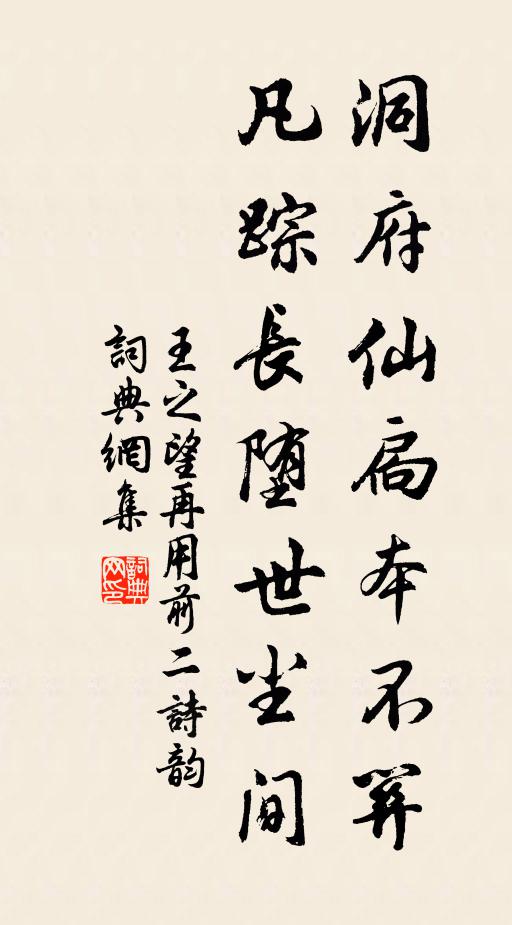 洞府仙扃本不關
凡踪長堕世尘间
王之望再用前二詩韵
詞典網集
詞典网印